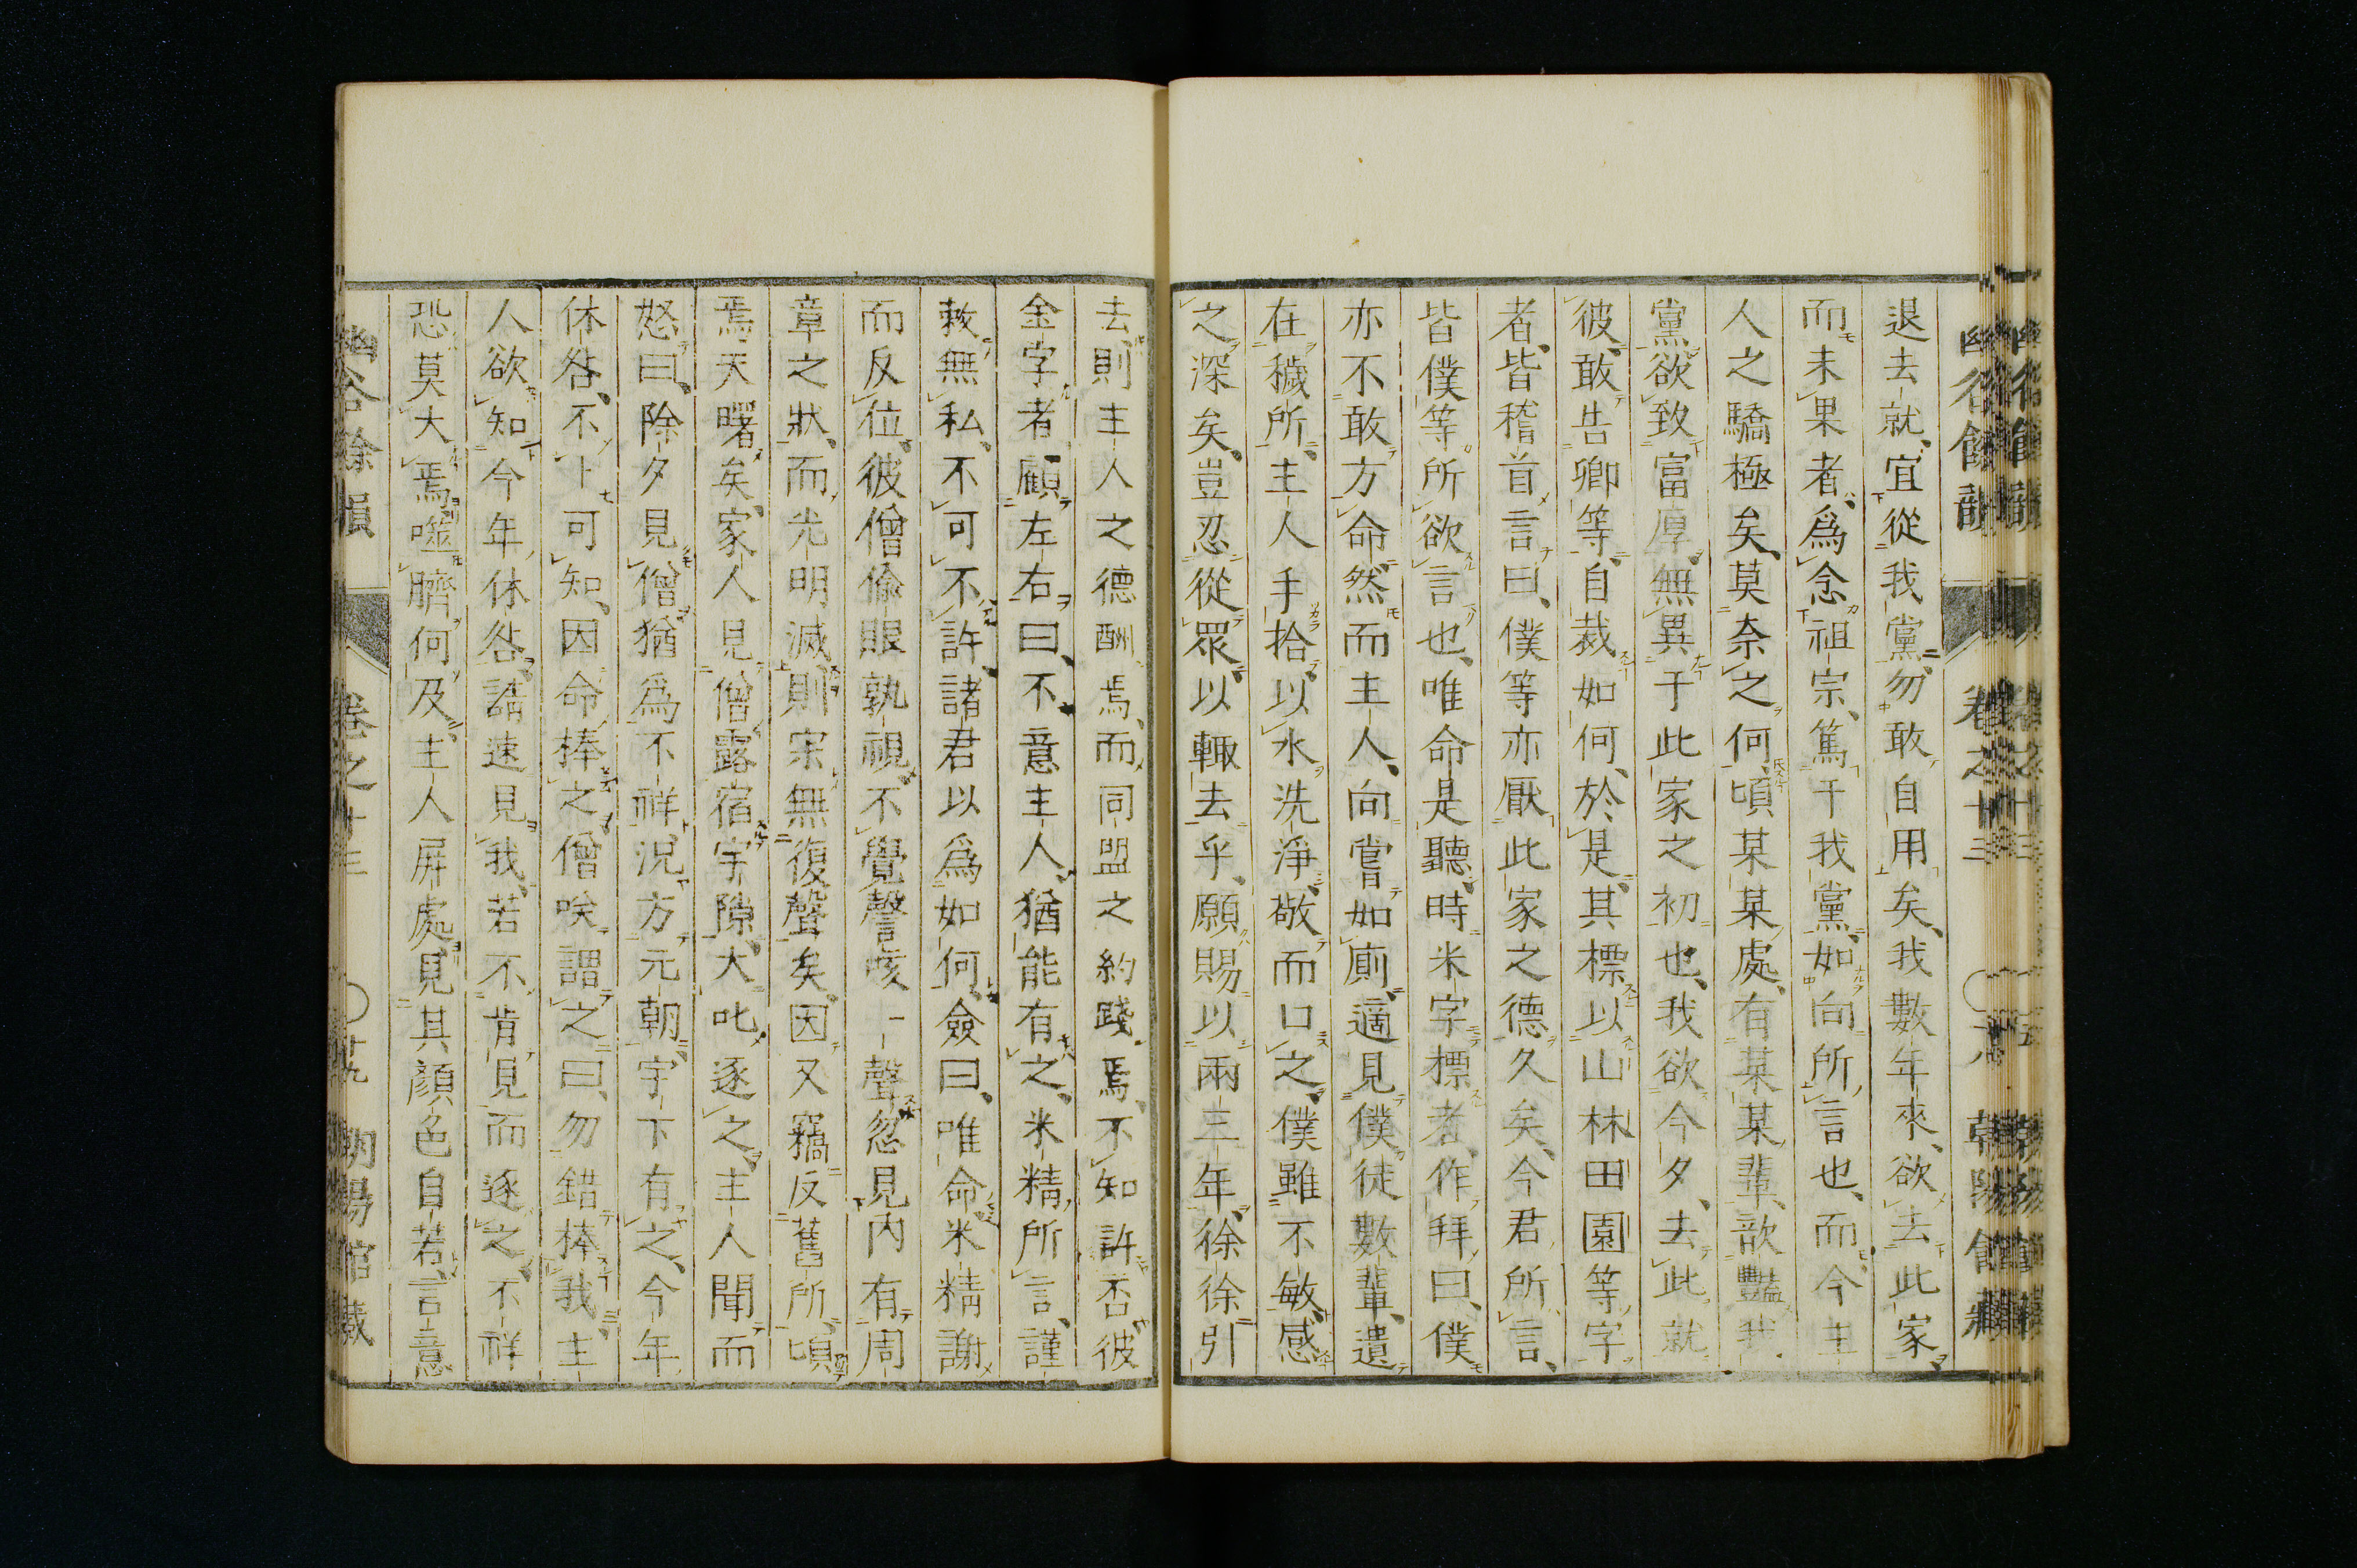 退去就、宜從我黨、勿敢自用矣、我數年來、欲去此家、
而未果者、爲念祖宗、篤于我黨、如向所言也、而今主
人之驕極矣、莫奈之何、頃某某處、有某某輩、歆豔我
黨、欲致富厚、無異于此家之初也、我欲今夕、去此就
彼、敢告卿等、自裁如何、於是、其標以山林田園等字
者、皆稽首言曰、僕等亦厭此家之德久矣、今君所言、
皆僕等所欲言也、唯命是聽、時米字標者、作拜曰、僕
亦不敢方命、然而主人、向嘗如廁、適見僕徒數輩、遺
在穢所、主人手拾、以水洗淨、敬而口之、僕雖不敏、感
之深矣、豈忍從眾、以輙去乎、願賜以兩三年、徐徐引
去、則主人之德酬焉、而同盟之約踐焉、不知許否、彼
金字者、顧左右曰、不意主人、猶能有之、米精所言、謹
敕無私、不可不許、諸君以爲如何、僉曰、唯命、米精謝
而反位、彼僧偸眼孰視、不覺謦咳一聲、忽見內有周
章之狀、而光明滅、則宗無復聲矣、因又竊反舊所、頃
焉天曙矣、家人見僧露宿宇隙、大叱逐之、主人聞而
怒曰、除夕見僧猶爲不祥、況方元朝、宇下有之、今年
休咎、不卜可知、因命捧之、僧唉謂之曰、勿錯棒我、主
人欲知今年休咎、請速見我、若不肯見而逐之、不祥
恐莫大焉、噬臍何及、主人屏處見其顏色自若、言意
幽谷餘韻 卷之十三 朝陽館藏